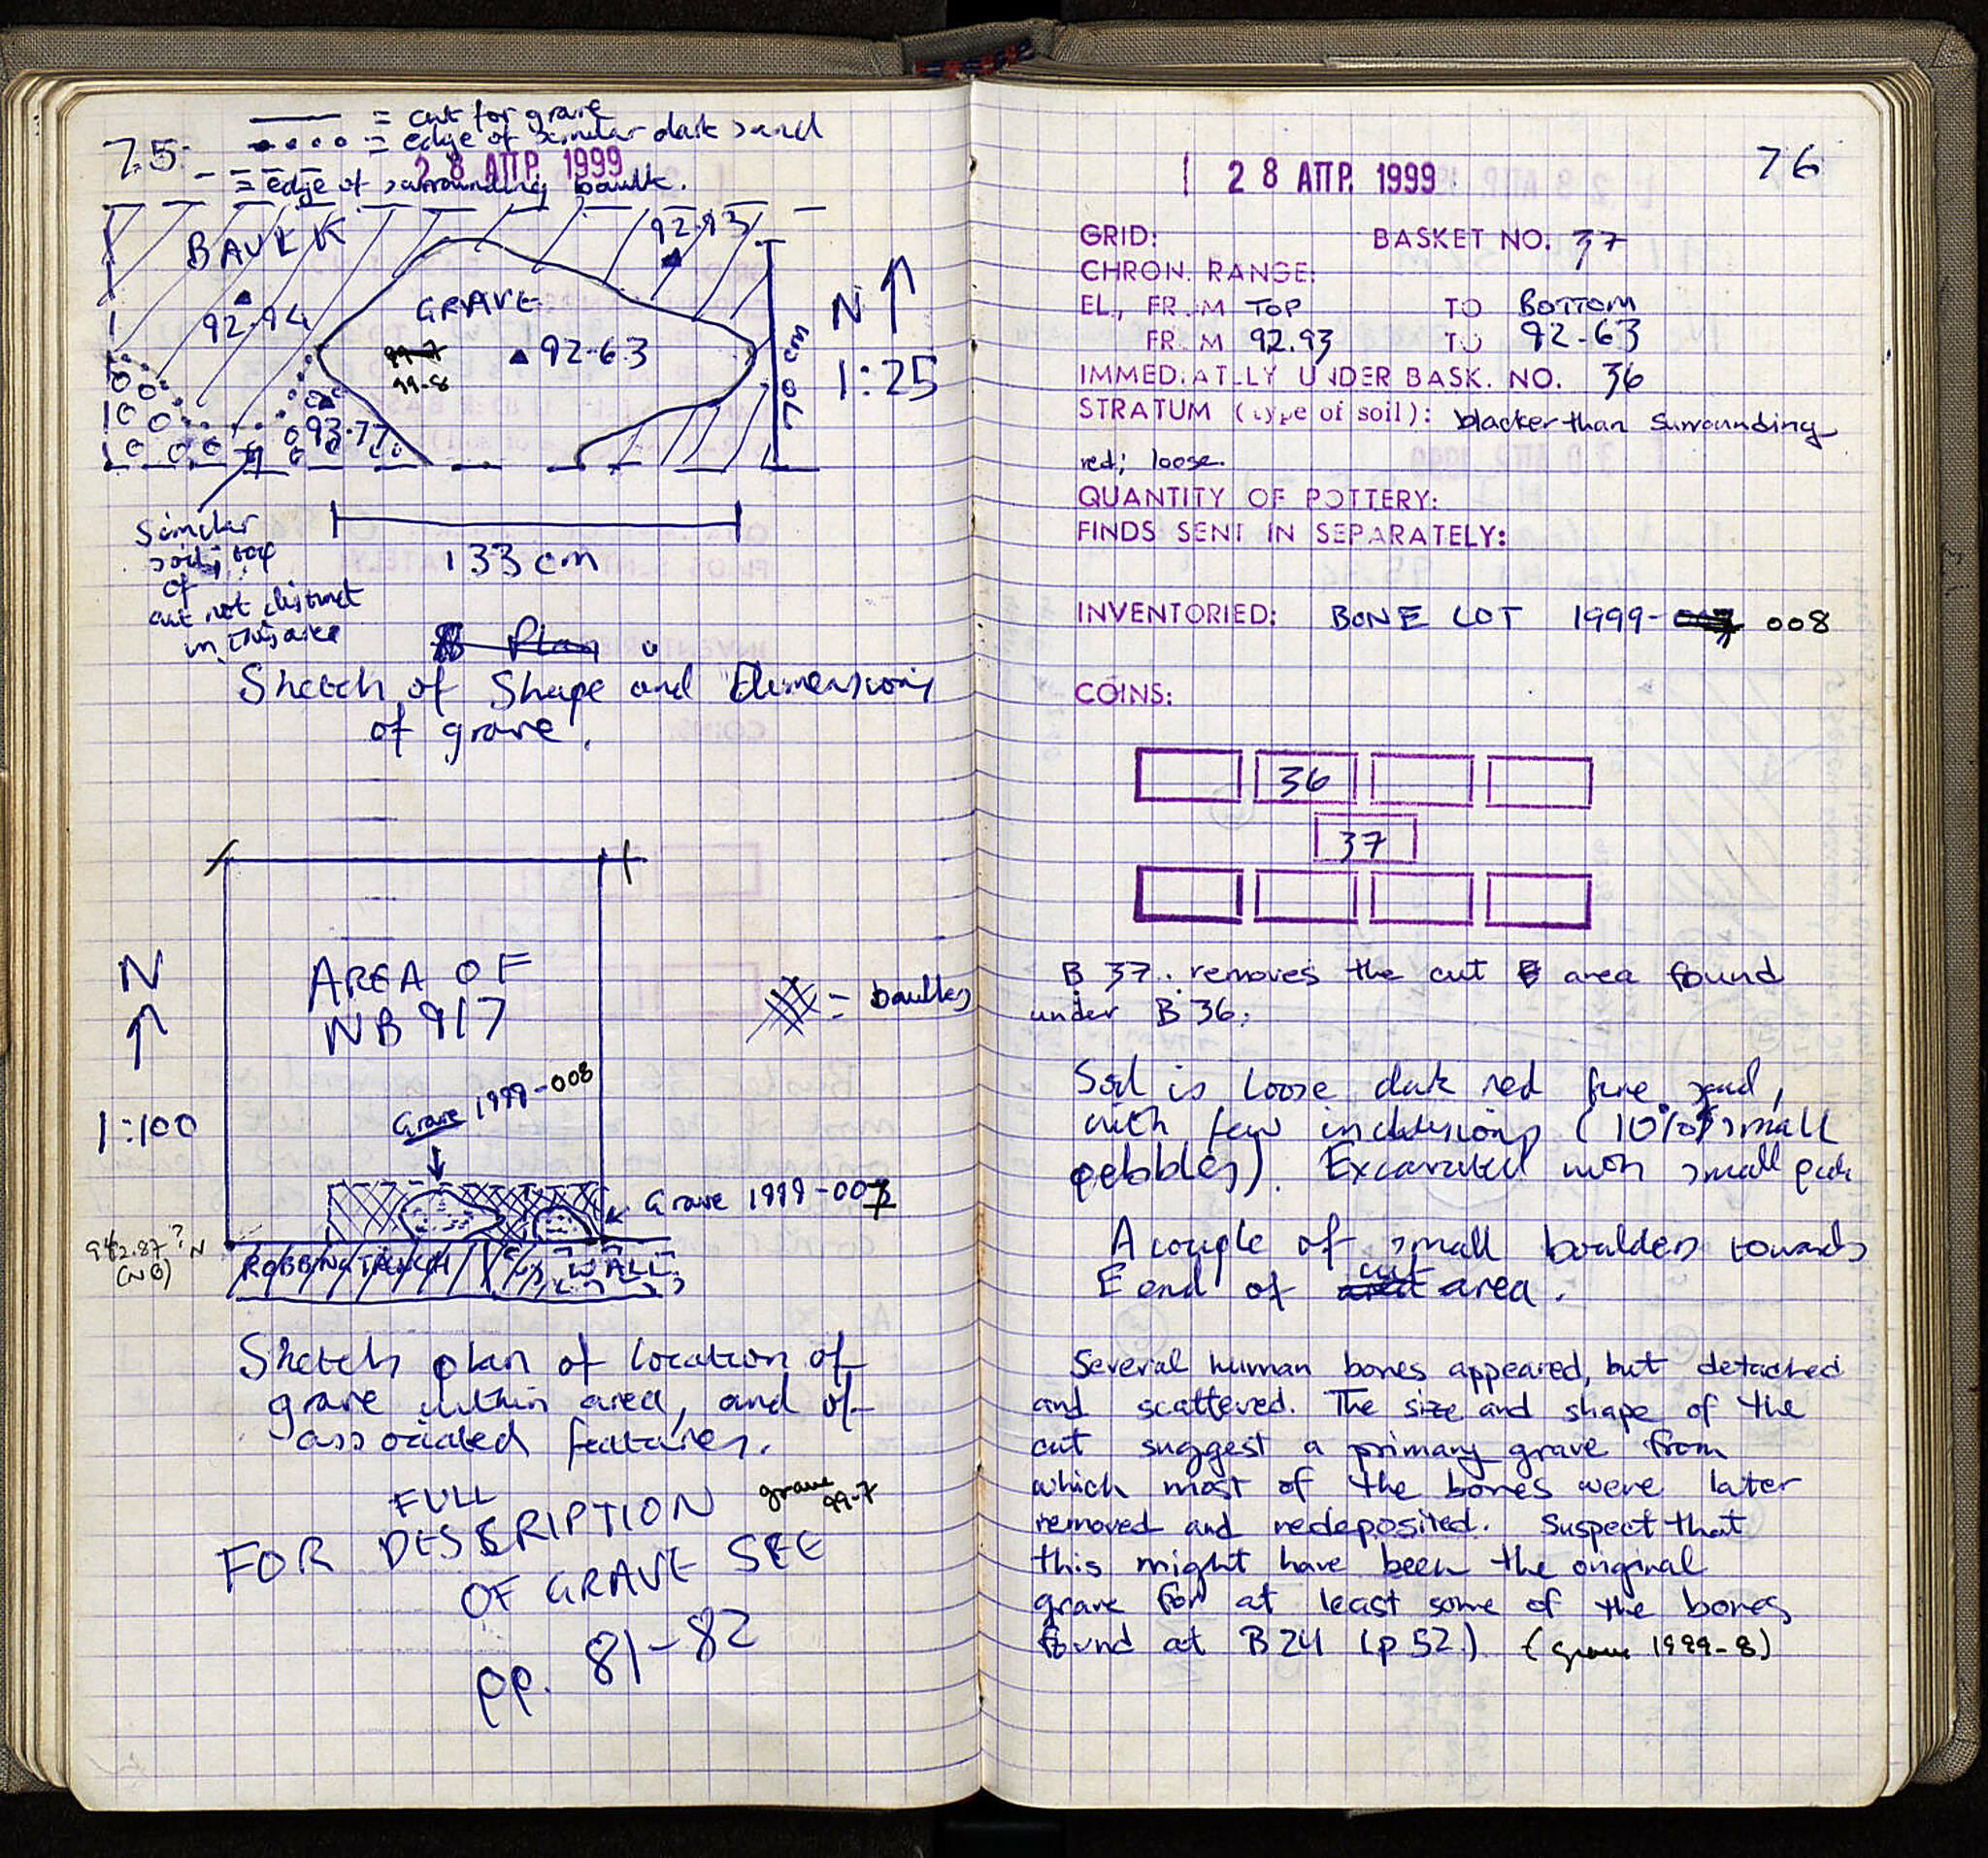 75.
——— = cut for grave
•••• = edge of similar dark sand
28 ΑΠΡ. 1999
– – – = edge of surrounding baulk.
BAULK
92.93
92.94
GRAVE
99-7
99-8
92.63
93.77
N
1:25
70 cm
133 cm
Similar
soil; top
of
cut not distinct
in this area
Plan
Sketch of Shape and Dimensions
of grave.
AREA OF
NB 917
N
1:100
= baulks
Grave 1999-008
Grave 1999-007
942.87? N
(NB)
ROBBING TRENCH
WALL
Sketch plan of location of
grave within area, and of
associated features.
FOR FULL DESCRIPTION
OF GRAVE grave 99-7 SEE
pp. 81-82
76
28 ΑΠΡ. 1999
GRID: BASKET NO. 37
CHRON. RANGE:
EL., FR.M TOP TO BOTTOM
FR.M 92.93 TO 92.63
IMMED.ATLLY UNDER BASK. NO. 36
STRATUM (type of soil): blacker than surrounding
red; loose.
QUANTITY OF POTTERY:
FINDS SENT IN SEPARATELY:
INVENTORIED: BONE LOT 1999-007 008
COINS:
36
37
B 37: removes the cut area found
under B 36.
Soil is loose dark red fine sand,
with few inclusions (10% small
pebbles). Excavated with small pick
A couple of small boulders towards
E end of cut area.
Several human bones appeared, but detached
and scattered. The size and shape of the
cut suggest a primary grave from
which most of the bones were later
removed and redeposited. Suspect that
this might have been the original
grave for at least some of the bones
found at B24 (p 52.) (grave 1999-8)